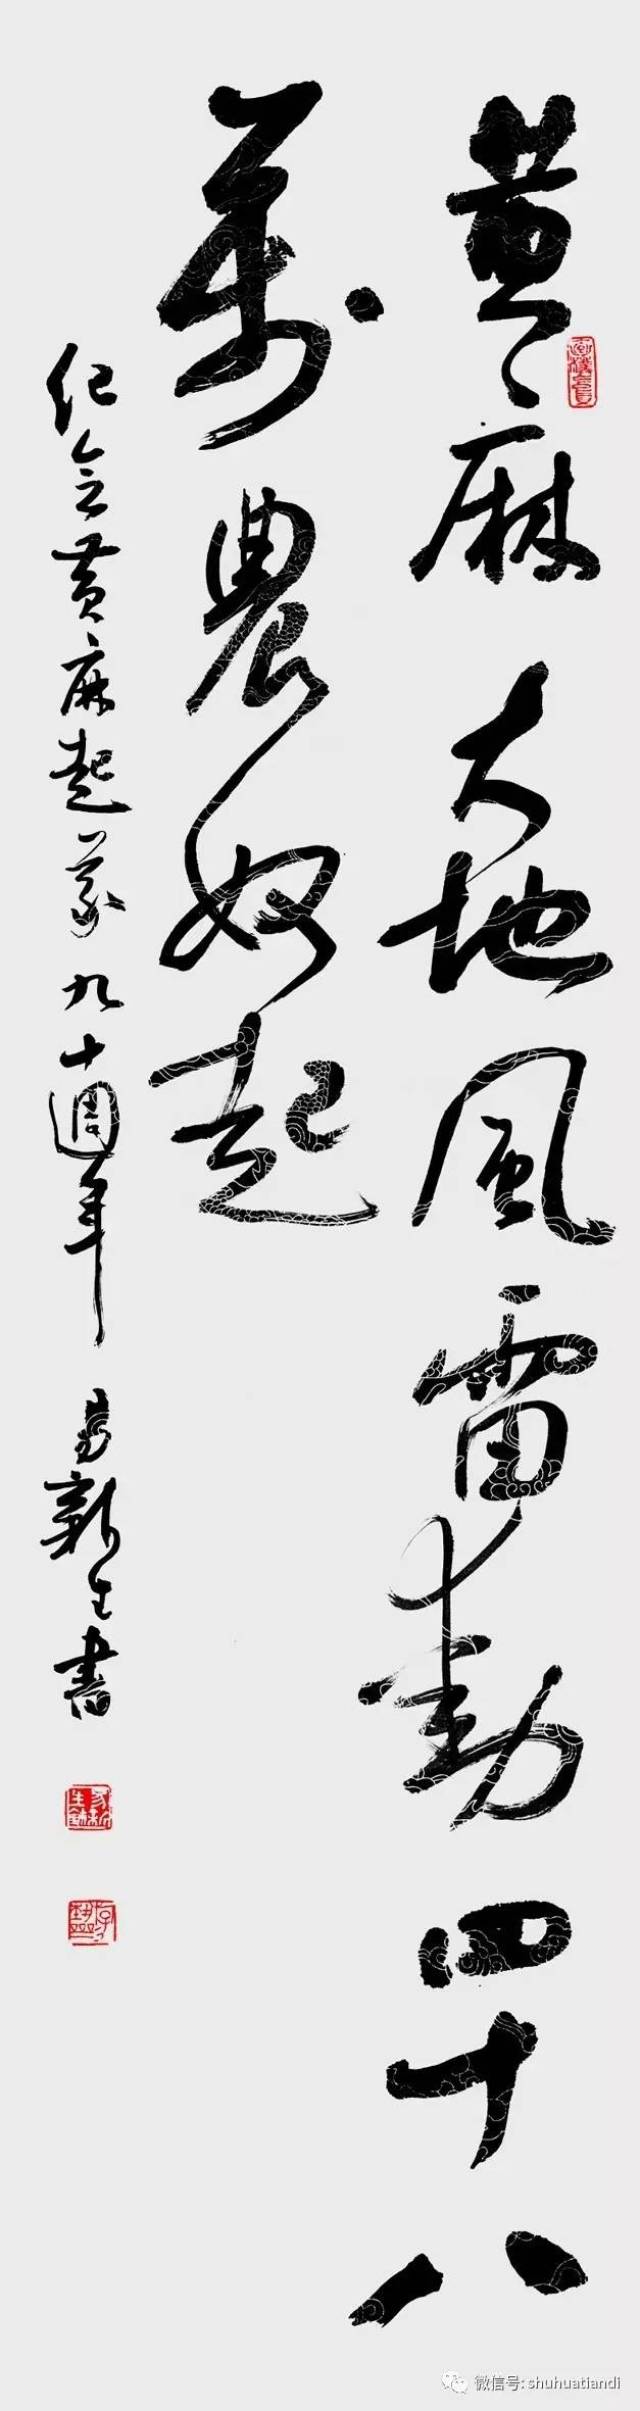 黄麻大地風雷動四十八
萬農奴起
纪念黄麻起义九十週年 易新生書
微信号: shuhuatiandi